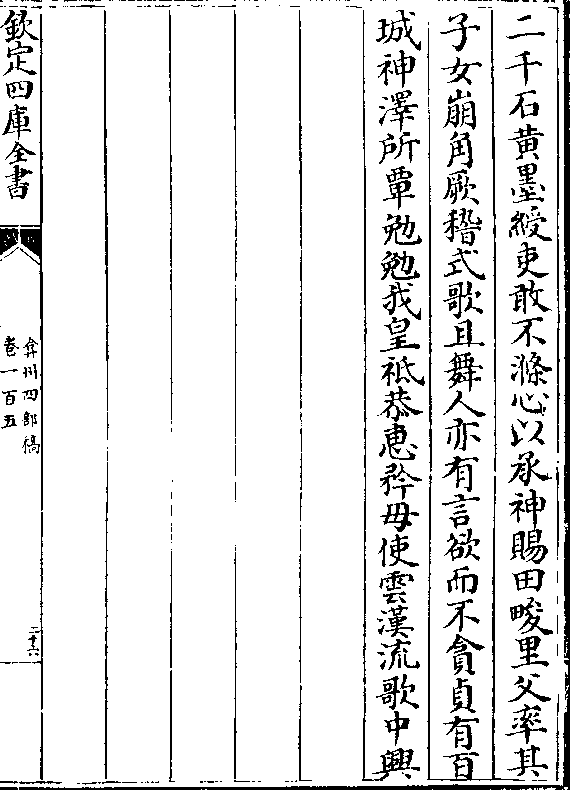 二千石黄墨綬吏敢不滌心以承神賜田畯里父率其
子女崩角厥稽式歌且舞人亦有言欲而不貪貞有百
城神澤所覃勉勉我皇祗恭惠矜毋使雲漢流歌中興
欽定四庫全書
弇州四部稿
卷一百五
二十六